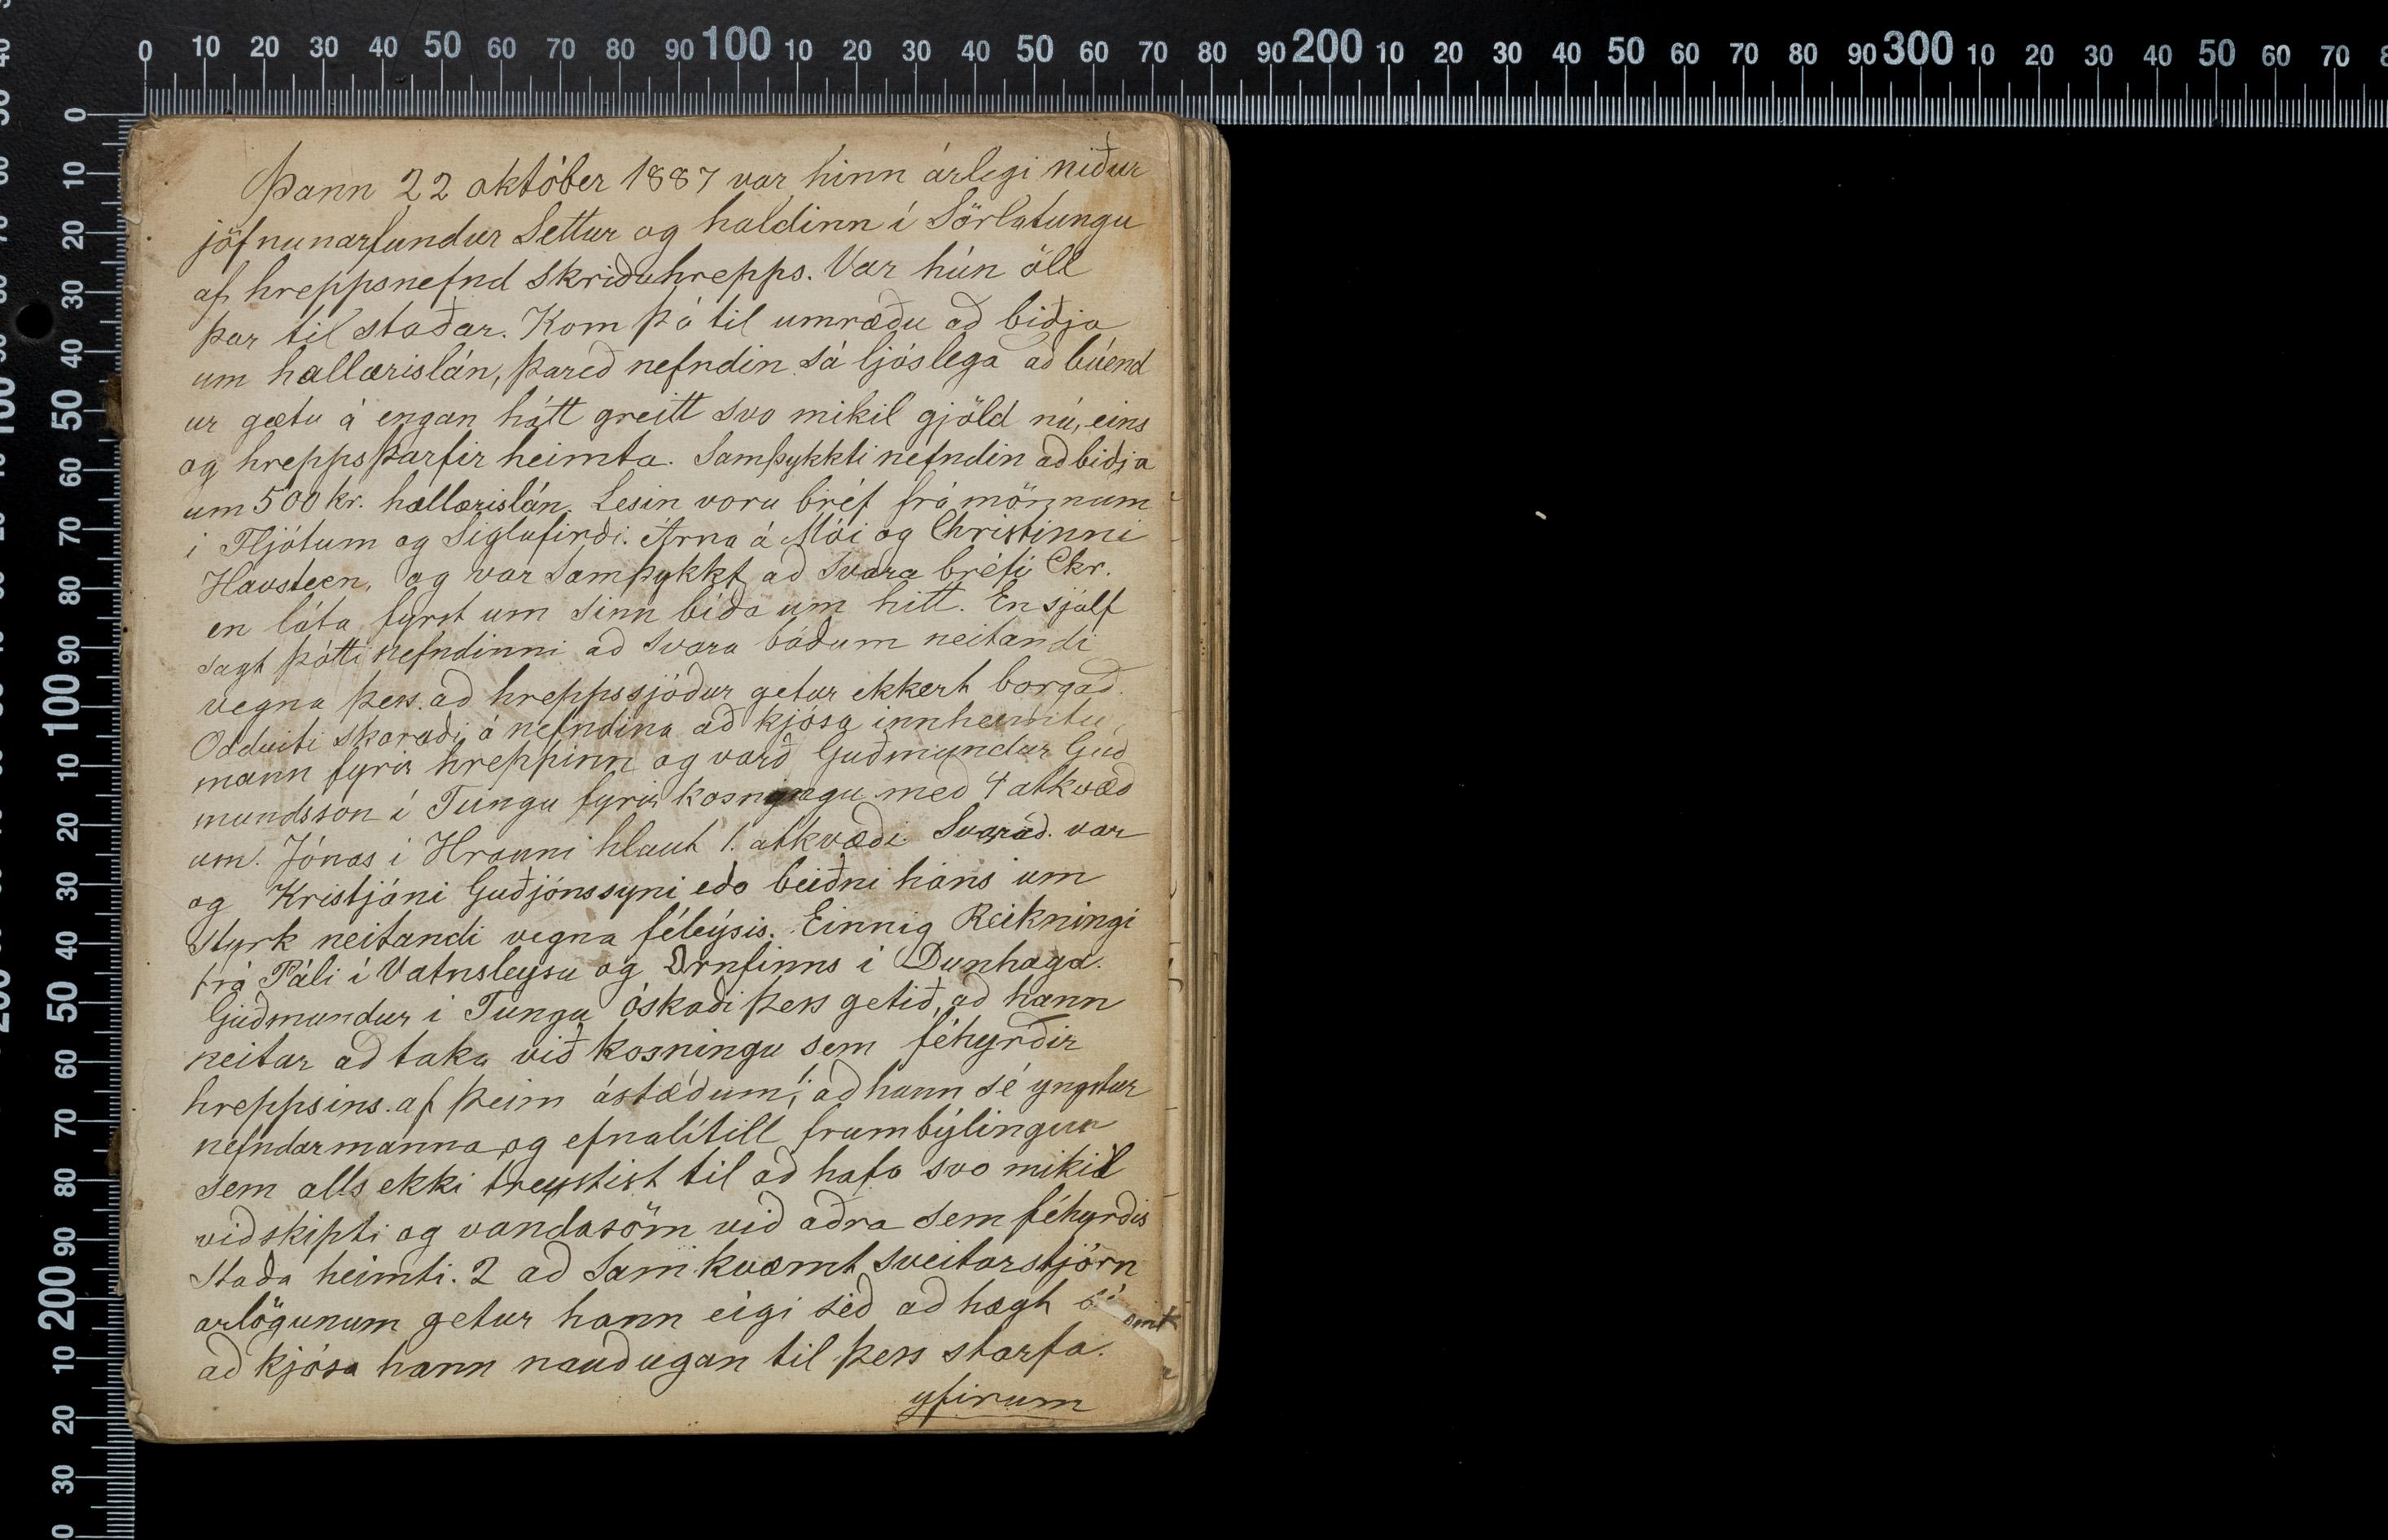 Þann 22 október 1887 var hinn árlegi niður
jöfnunarfundur Settur og haldinn í Sörlatungu
af hreppsnefnd Skriðuhrepps. Var hún öll
þar til staðar. Kom þá til umræðu að biðja
um hallærislán, þareð nefndin sá ljóslega að búend
ur gætu á engan hátt greitt svo mikil gjöld nú, eins
og hreppsþarfir heimta. Samþykkti nefndin að biðja
um 500 kr. hallærislán. Lesin voru bréf frá mönnum
i Fljótum og Siglufirði. Árna á Mói og Christinni
Havsteen, og var samþykkt að svara bréfi Chr.
en láta fyrst um sinn bíða um hitt. En sjálf
sagt þótti nefndinni að svara báðum neitandi
vegna þess að hreppssjóður getur ekkert borgað.
Oddviti skoraði á nefndina að kjósa innheimtu
mann fyrir hreppinn og varð Guðmundur Guð
mundsson í Tungu fyrir kosningu með 4 atkvæð
um. Jónas i Hrauni hlaut 1. atkvæði. Svarað. var
og Kristjáni Guðjónssyni eða beiðni hans um
Styrk neitandi vegna féleýsis. Einnig Reikningi
frá Páli í Vatnsleysu og Örnfinns i Dunhaga.
Guðmundur i Tungu óskaði þess getið, að hann
neitar að taka við kosningu sem féhyrðir
hreppsins. af þeim ástæðum; 1 að hann sé yngstur
nefndarmanna og efnalítill frumbýlingur
sem alls ekki treystist til að hafa svo mikil
viðskipti og vandasöm við aðra sem féhyrðis
staða heimti. 2 að Samkvæmt sveitarstjórn
arlögunum getur hann eigi séð að hægt sé
að kjósa hann nauðugan til þess starfa.
yfirum